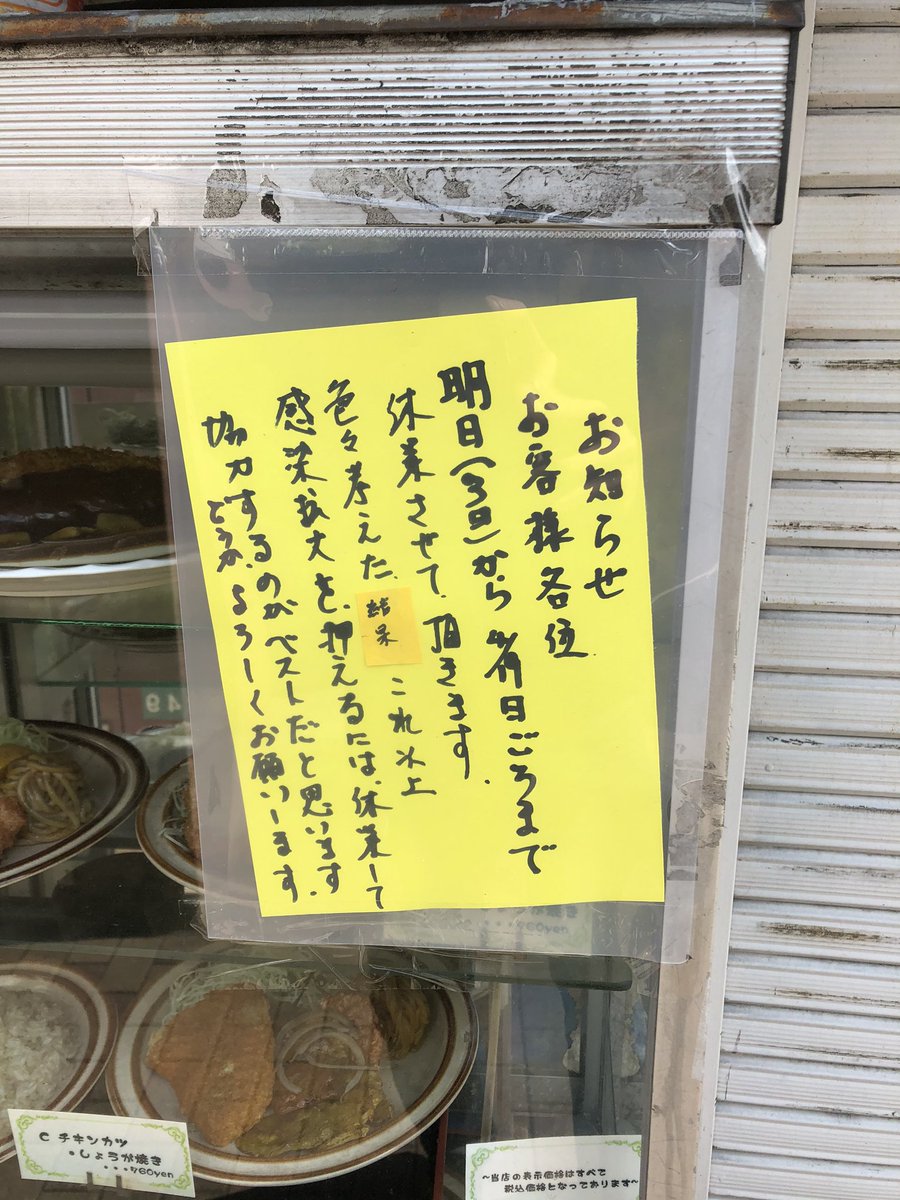 お知らせ
お客様各位
明日(3日)から 日ごろまで
休業させて、頂きます.
色々考えた、結果 これ以上
感染拡大を、押えるには、休業して
協力するのがベストだと思います.
どうか、よろしくお願いします.
C チキンカツ
・しょうが焼き
・・・760yen
~当店の表示価格はすべて
税込価格となっております~